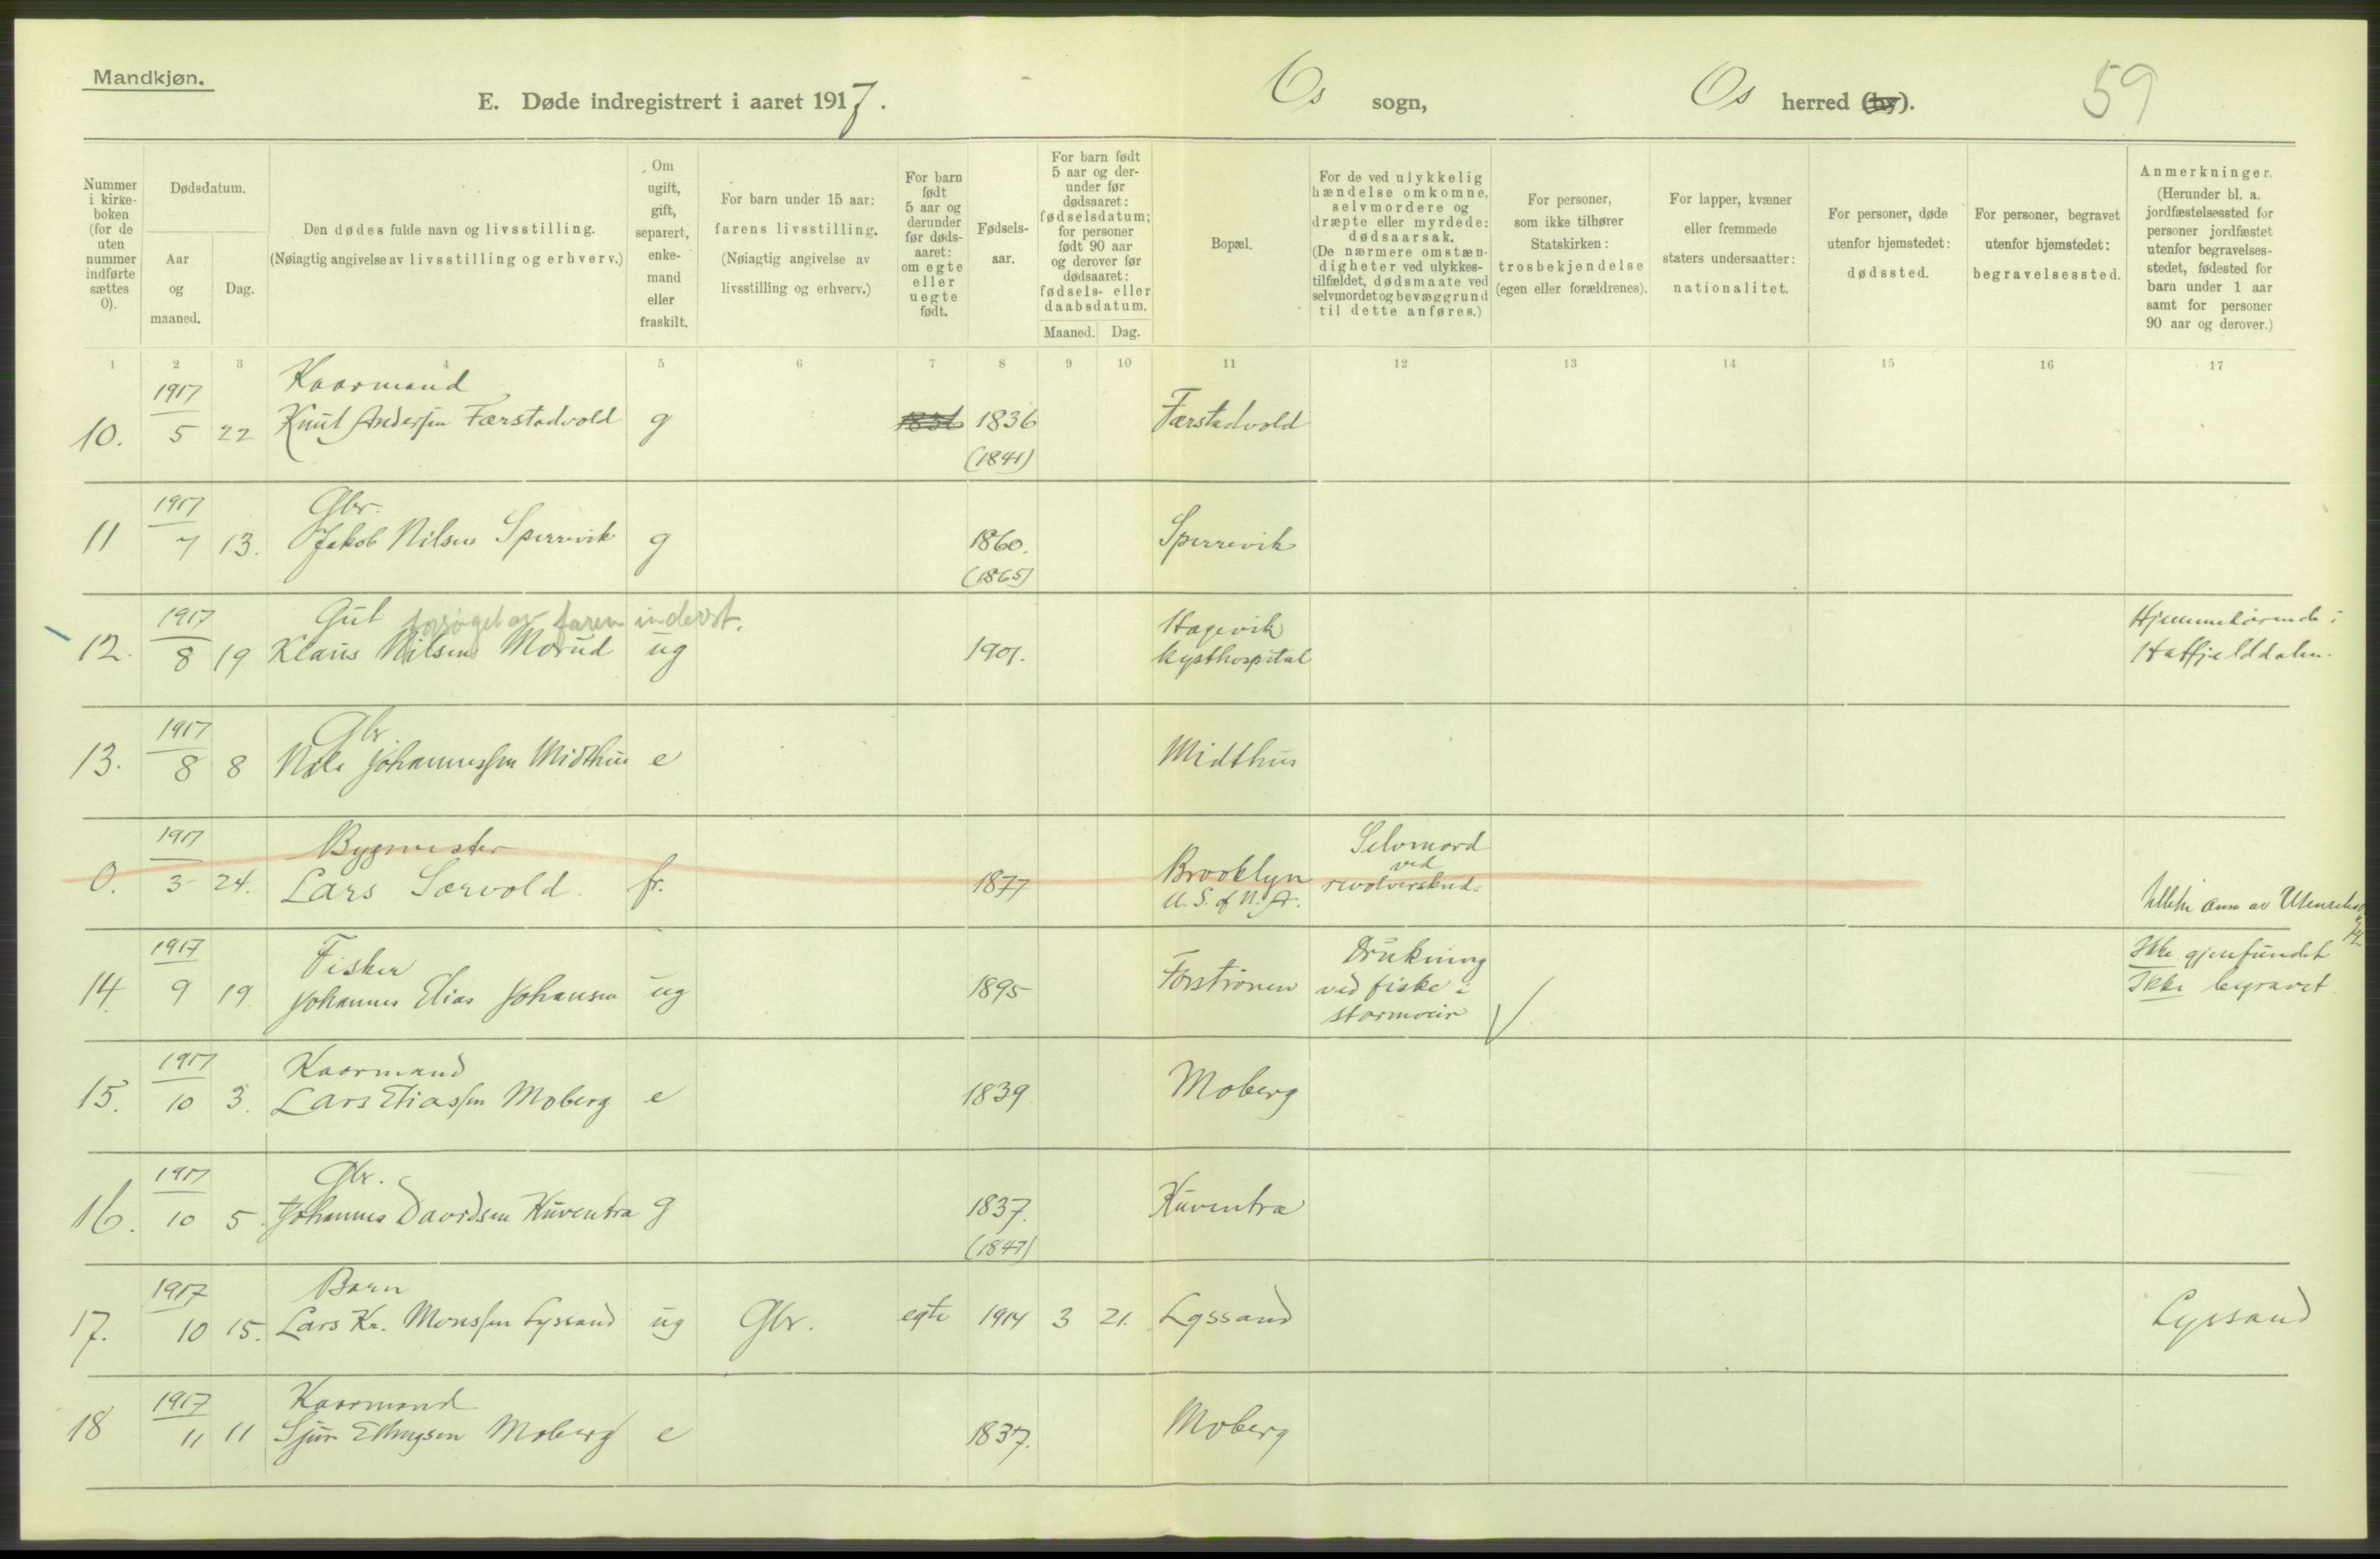 Mandkjøn.
E. Døde indregistrert i aaret 1917.
Os sogn,
Os herred (by).
59
Nummer i kirke-boken (for de uten nummer indførte sættes 0).
Dødsdatum.
Aar og maaned.
Dag.
Den dødes fulde navn og livsstilling.
(Nøiagtig angivelse av livsstilling og erhverv.)
Om ugift, gift, separert, enke-mand eller fraskilt.
For barn under 15 aar:
farens livsstilling.
(Nøiagtig angivelse av livsstilling og erhverv.)
For barn født 5 aar og derunder før døds-aaret: om egte eller uegte født.
Fødsels-aar.
For barn født 5 aar og der-under før dødsaaret: fødselsdatum; for personer født 90 aar og derover før dødsaaret: fødsels- eller daabsdatum.
Maaned. Dag.
Bopæl.
For de ved ulykkelig hændelse omkomne, selvmordere og dræpte eller myrdede: dødsaarsak.
(De nærmere omstæn-digheter ved ulykkes-tilfældet, dødsmaate ved selvmordet og bevæggrund til dette anføres.)
For personer, som ikke tilhører Statskirken: trosbekjendelse (egen eller forældrenes).
For lapper, kvæner eller fremmede staters undersaatter: nationalitet.
For personer, døde utenfor hjemstedet: dødssted.
For personer, begravet utenfor hjemstedet: begravelsessted.
Anmerkninger.
(Herunder bl. a. jordfæstelsessted for personer jordfæstet utenfor begravelses-stedet, fødested for barn under 1 aar samt for personer 90 aar og derover.)
1 2 3 4 5 6 7 8 9 10 11 12 13 14 15 16 17
1917 Kaarmand
10. 5 22 Knut Andersen Færstadvold g 1836 1836 Færstadvold
(1841)
1917 Gbr.
11 7 13. Jakob Nilsen Sperrevik g 1860. Sperrevik
(1865)
1917 Gut forsørget av faren inderst. Hagevik Hjemmehørende i
12. 8 19 Klaus Nilsen Morud ug 1901. kysthospital Hatfjelddalen.
1917 Gbr.
13. 8 8 Nils Johannessen Midthus e Midthus
1917 Bygmester Selvmord
0. 3 24. Lars Sørvold. fr. 1877 Brooklyn ved revolverskud.
U. S. of N. A.
av
1917 Fisker Drukning Ikke gjenfundet
14. 9 19. Johannes Elias Johansen ug 1895 Forstrønen ved fiske i Ikke begravet.
stormveir
1917 Kaarmand
15. 10 3. Lars Eliassen Moberg e 1839 Moberg
1917 Gbr.
16. 10 5. Johannes Davidsen Kuventræ g 1837. Kuventræ
(1847)
1917 Barn
17. 10 15. Lars Kr. Monssen Lyssand ug Gbr. egte 1914 3 21. Lyssand Lyssand
1917 Kaarmand
18 11 11 Sjur Ellingsen Moberg e 1837. Moberg